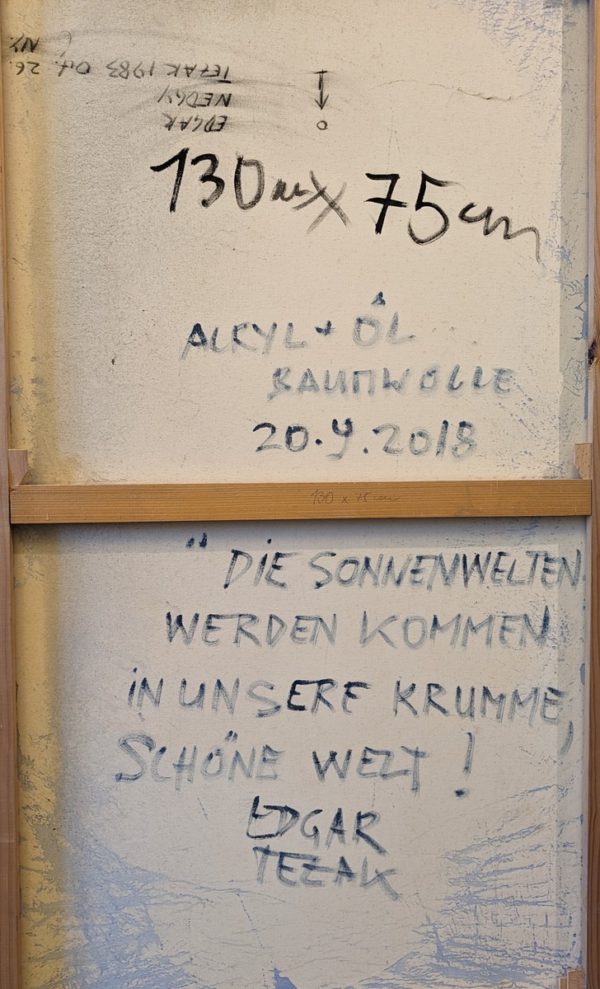 EDGAR
TEZAK 1983 Oct. 26.
NY.
130cm x 75cm
ACRYL + ÖL
BAUMWOLLE
20.9.2018
130 x 75 cm
"DIE SONNENWELTEN
WERDEN KOMMEN
IN UNSERE KRUMME,
SCHÖNE WELT!
EDGAR
TEZAK